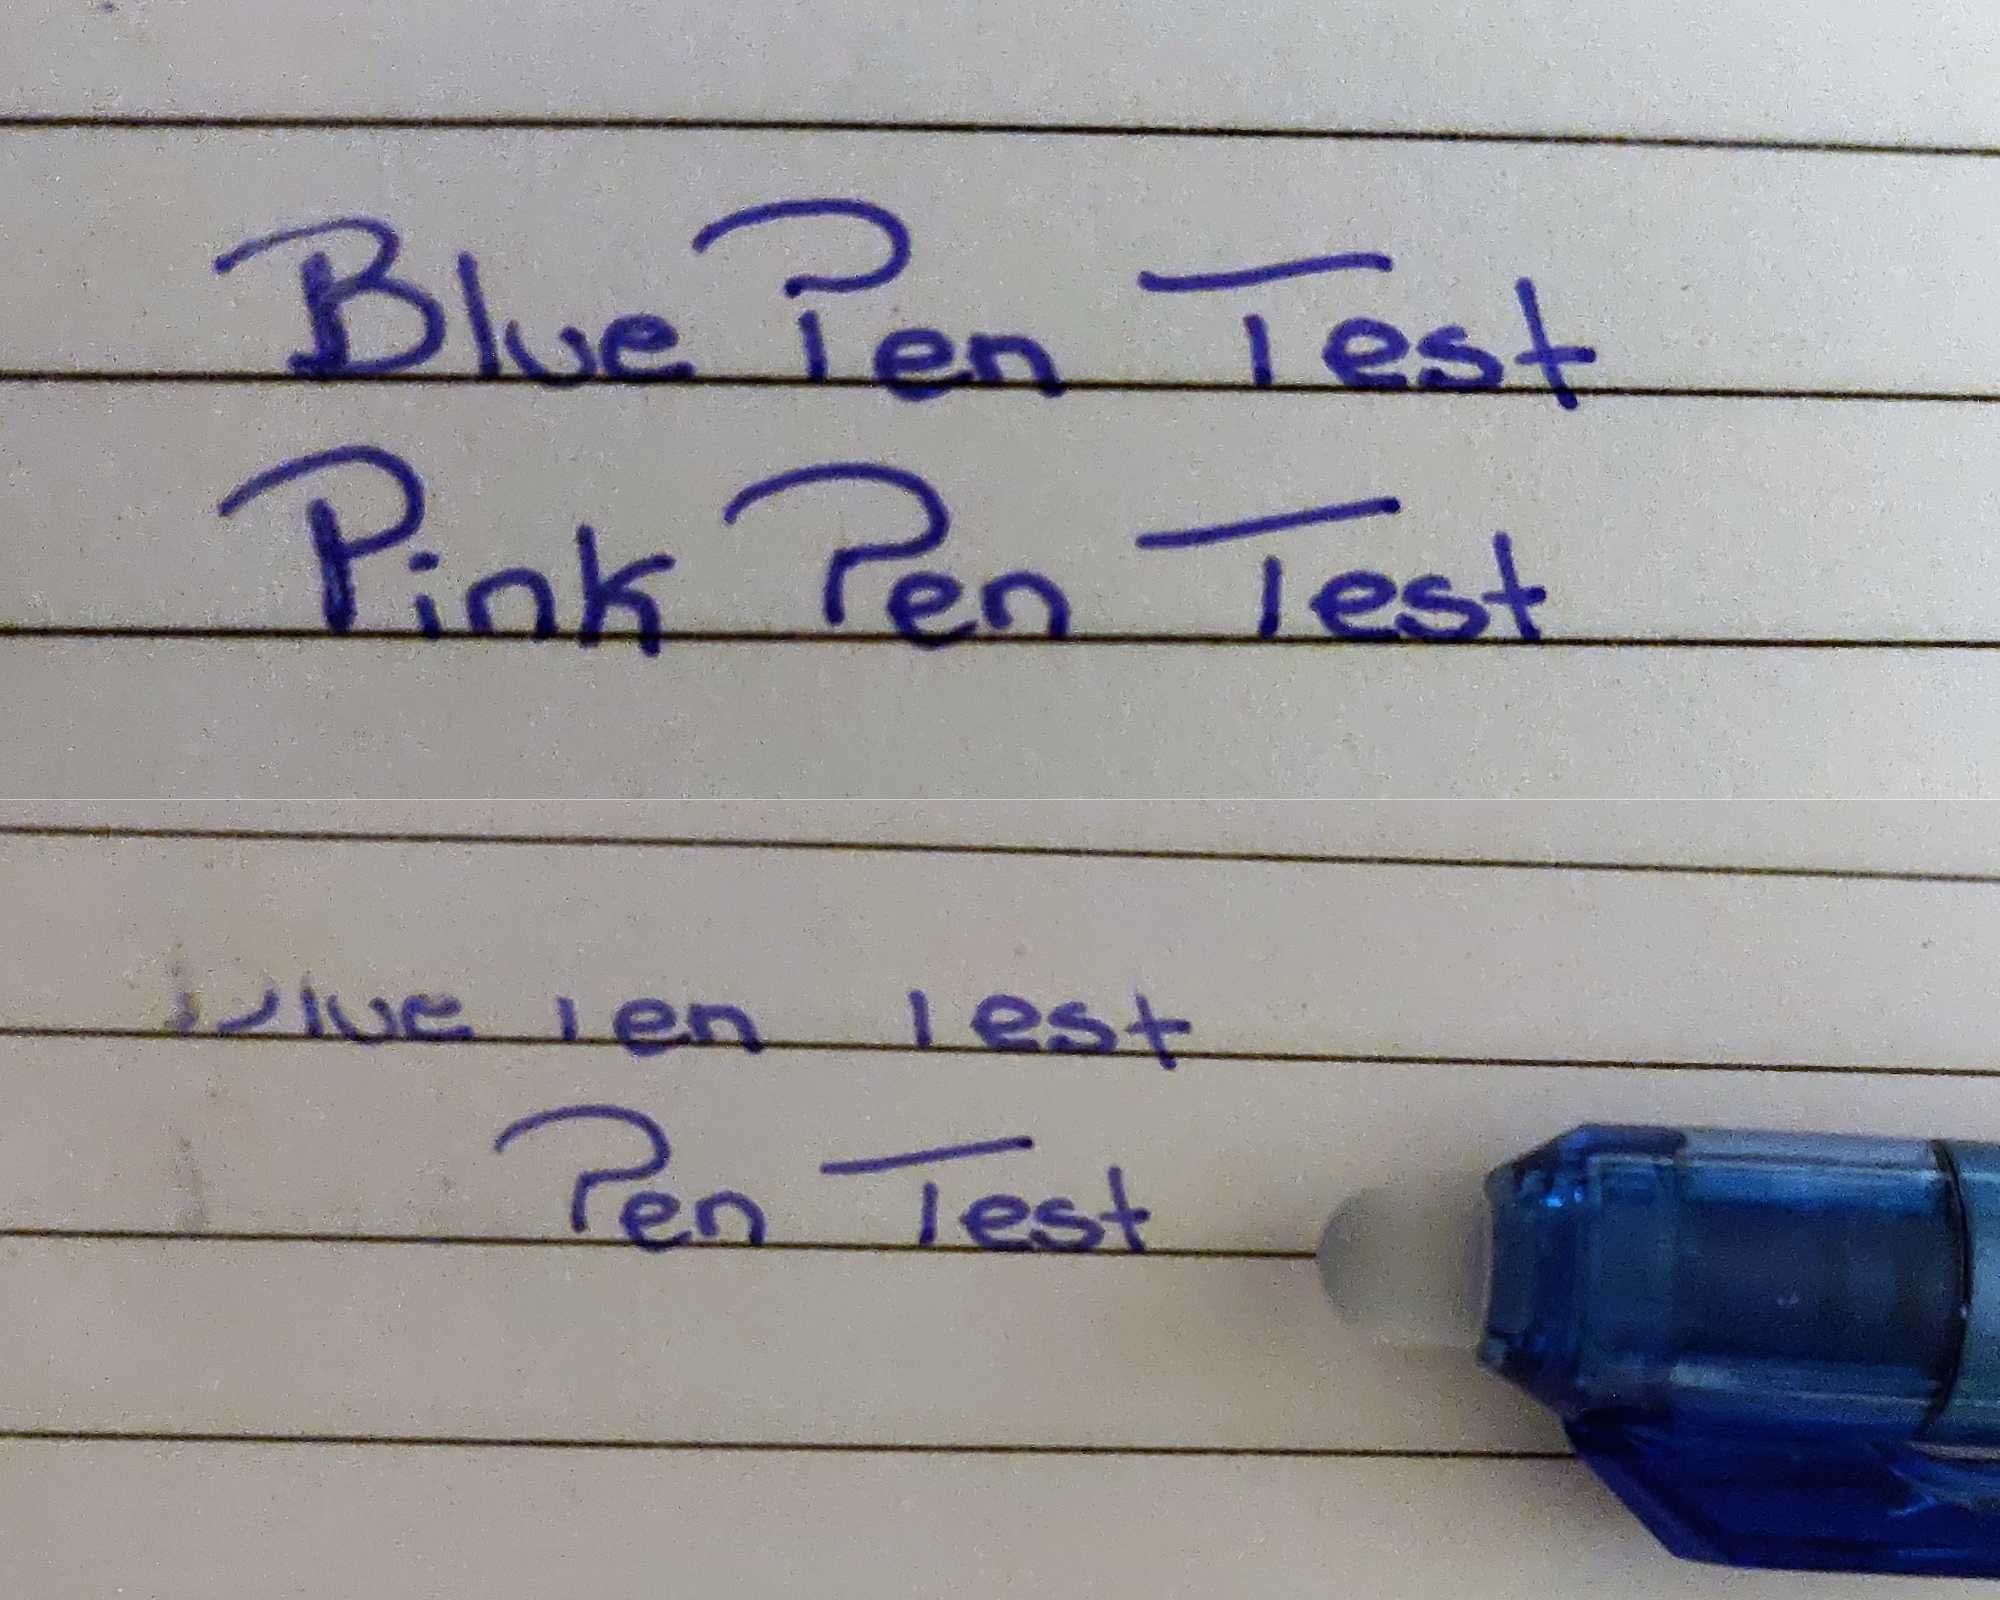 Blue Pen Test
Pink Pen Test
en Test
Pen Test